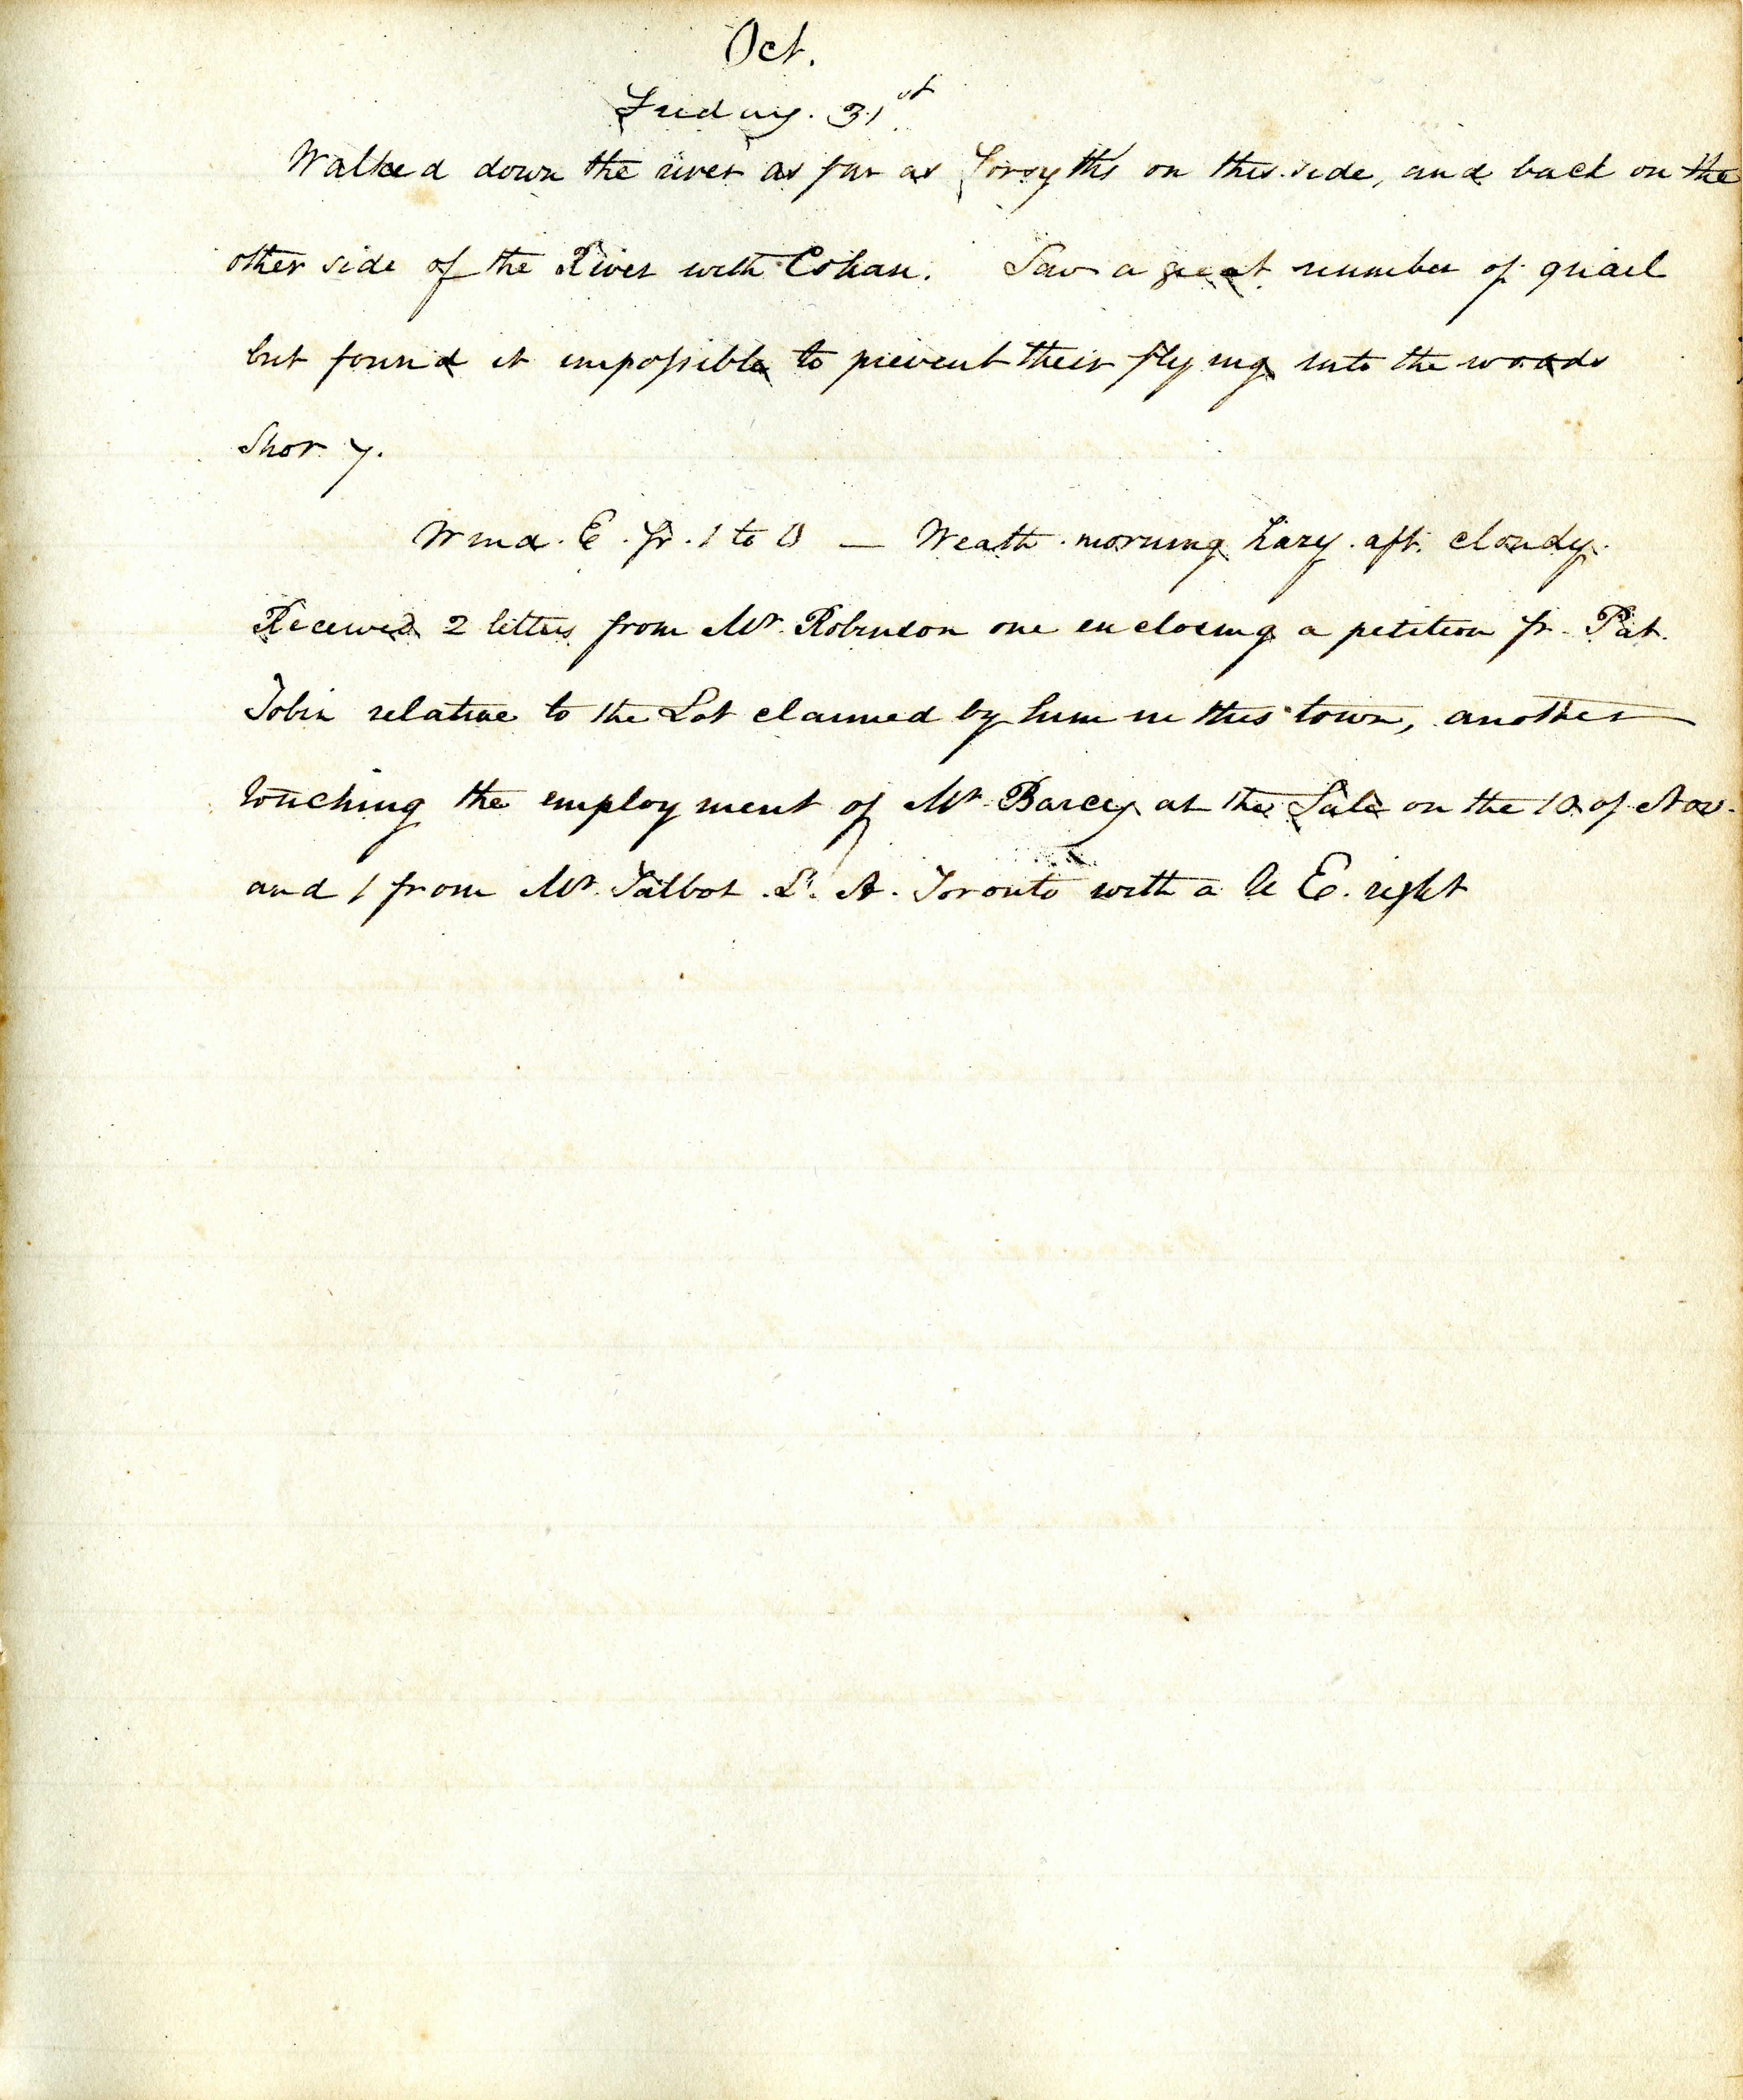 Oct.
Friday. 31st
Walked down the river as far as Forsyths on this side, and back on the
other side of the River with Cohan. Saw a great number of quail
but found it impossible to prevent their flying into the woods
Shot 7.
Wind. E. fr. 1 to 0 — Weath. morning hazy. aft. cloudy.
Received 2 letters from Mr. Robinson one enclosing a petition fr. Pat.
Tobin relative to the Lot claimed by him in this town, another
touching the employment of Mr. Barcey at the Sale on the 10 of Nov.
and 1 from Mr. Talbot. L. A. Toronto with a U E. right